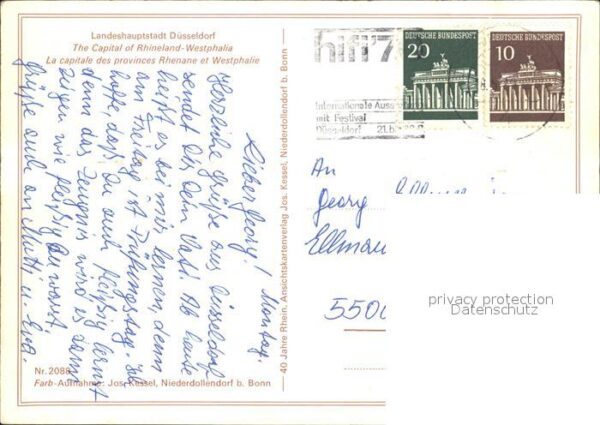 Landeshauptstadt Düsseldorf
The Capital of Rhineland-Westphalia
La capitale des provinces Rhenane et Westphalie
Montag.
Lieber Georg!
Herzliche Grüße aus Düsseldorf
sendet Dir Dein Vati. Ab heute
heißt es bei mir lernen, denn
am Freitag ist Prüfungstag. Ich
hoffe daß Du auch fleißig lernst
denn das Zeugnis wird es dann
zeigen wie fleißig Du warst.
Grüße auch an Mutti u. Eva.
Nr. 2088
Farb-Aufnahme: Jos. Kessel, Niederdollendorf b. Bonn
40 Jahre Rhein. Ansichtskartenverlag Jos. Kessel, Niederdollendorf b. Bonn
hifi'7
Internationale Auss
mit Festival
Düsseldorf 21.b
20 DEUTSCHE BUNDESPOST
10 DEUTSCHE BUNDESPOST
An
Georg
Ellman
550
privacy protection
Datenschutz